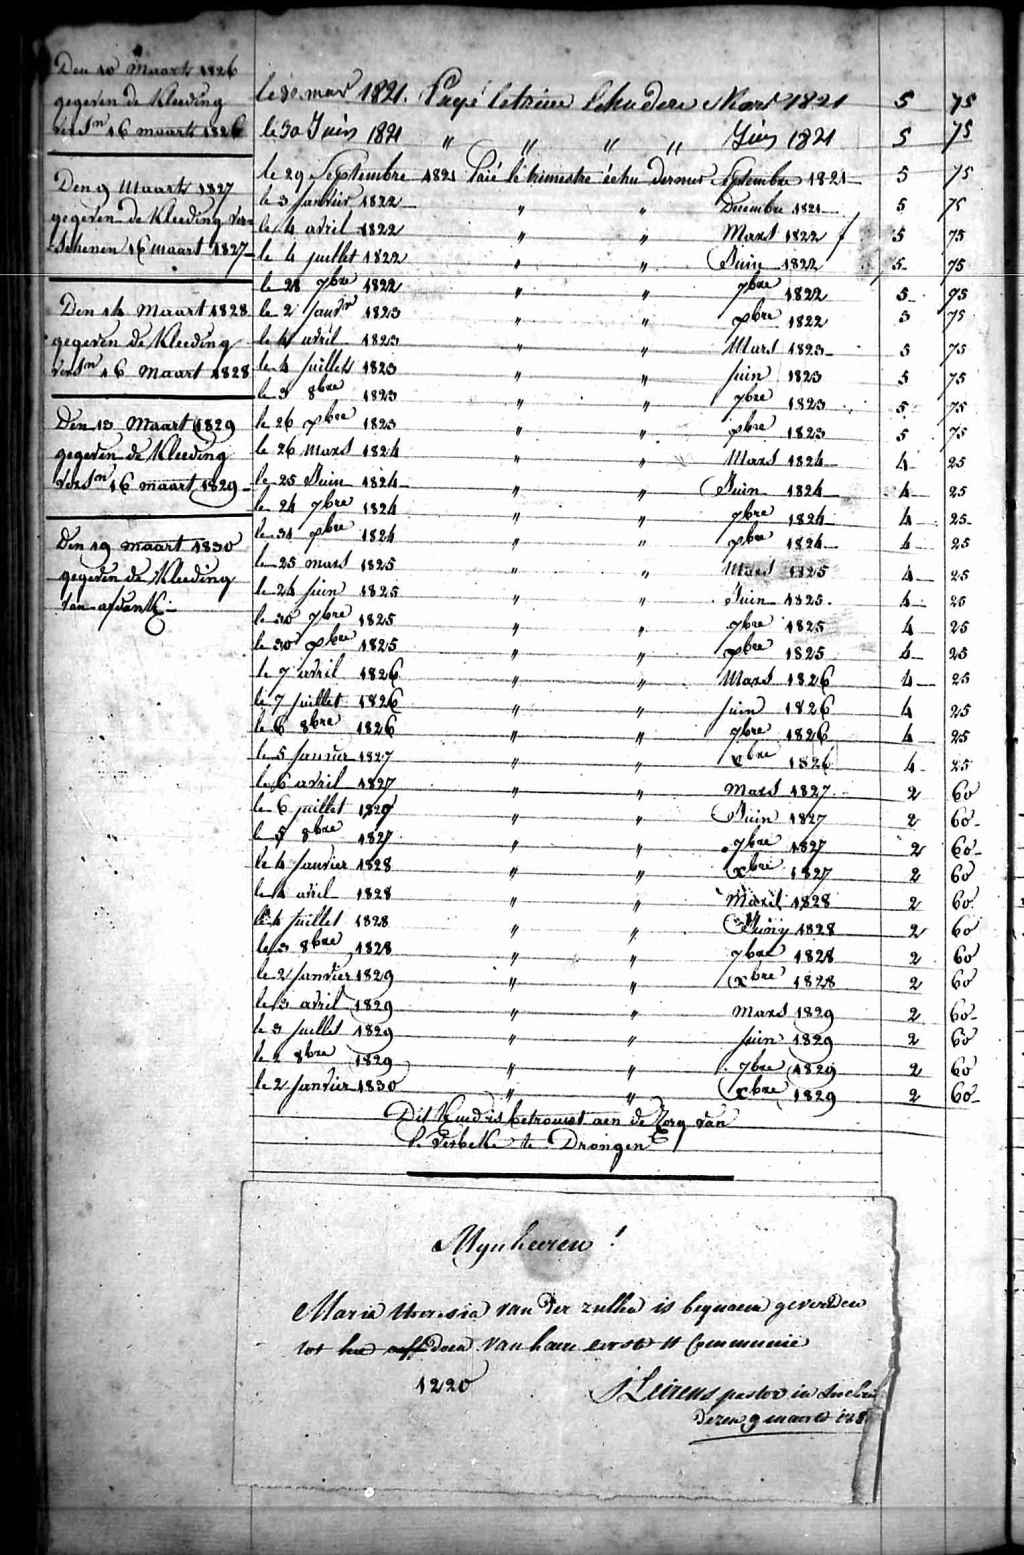 Den 10 Maarts 1826
gegeven de Kleeding
versn 16 maarts 1826
Den 9 Maarts 1827
gegeven de Kleeding ver=
schenen 16 maart 1827
Den 14 Maart 1828
gegeven de Kleeding
versn 16 Maart 1828
Den 13 Maart 1829
gegeven de Kleeding
versn 16 maart 1829
Den 19 maart 1830
gegeven de Kleeding
van
le 30 mar 1821. Payé letrime Echu dere Mars 1821 5 75
le 30 Juin 1821 " " " " Juin 1821 5 75
le 29 Septembre 1821 Paié le trimestre échu dernier Septembre 1821 5 75
le 3 janvier 1822 " " Decembre 1821 5 75
le 4 avril 1822 " " Mars 1822 5 75
le 4 juillet 1822 " " Juin 1822 5 75
le 28 7bre 1822 " " 7bre 1822 5 75
le 2 janvr 1823 " " xbre 1822 5 75
le 4 avril 1823 " " Mars 1823 5 75
le 4 juillets 1823 " " juin 1823 5 75
le 3 8bre 1823 " " 7bre 1823 5 75
le 26 xbre 1823 " " xbre 1823 5 75
le 26 Mars 1824 " " Mars 1824 4 25
le 25 Juin 1824 " " Juin 1824 4 25
le 24 7bre 1824 " " 7bre 1824 4 25
le 31 xbre 1824 " " xbre 1824 4 25
le 25 mars 1825 " " Mars 1825 4 25
le 24 juin 1825 " " Juin 1825 4 25
le 30 7bre 1825 " " 7bre 1825 4 25
le 30 xbre 1825 " " xbre 1825 4 25
le 7 avril 1826 " " Mars 1826 4 25
le 7 juillet 1826 " " juin 1826 4 25
le 6 8bre 1826 " " 7bre 1826 4 25
le 5 janvier 1827 " " xbre 1826 4 25
le 6 avril 1827 " " mars 1827 2 60
le 6 juillet 1827 " " Juin 1827 2 60
le 5 8bre 1827 " " 7bre 1827 2 60
le 4 janvier 1828 " " xbre 1827 2 60
le 4 avril 1828 " " 1828 2 60
le 4 juillet 1828 " " Juiny 1828 2 60
le 3 8bre 1828 " " 7bre 1828 2 60
le 2 janvier 1829 " " xbre 1828 2 60
le 3 avril 1829 " " mars 1829 2 60
le 3 juillet 1829 " " juin 1829 2 60
le 2 8bre 1829 " " 7bre 1829 2 60
le 2 janvier 1830 " " xbre 1829 2 60
Dit Kind is betrouwt aen de Zorg van
te Drongen
Mynheeren !
Maria theresia van der zulka is bequaem geworden
tot doen van haere eerste H Communie
1220
Leirens pastor in
dezen 9 maarts